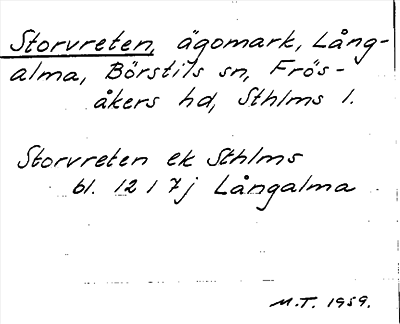 Storvreten, ägomark, Lång-
alma, Börstils sn, Frös-
åkers hd, Sthlms l.
Storvreten ek Sthlms
bl. 12 I 7j Långalma
M.T. 1959.